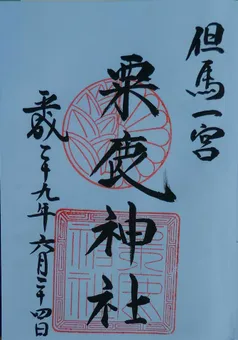 但馬一宮
粟鹿神社
平成二十九年六月二十四日